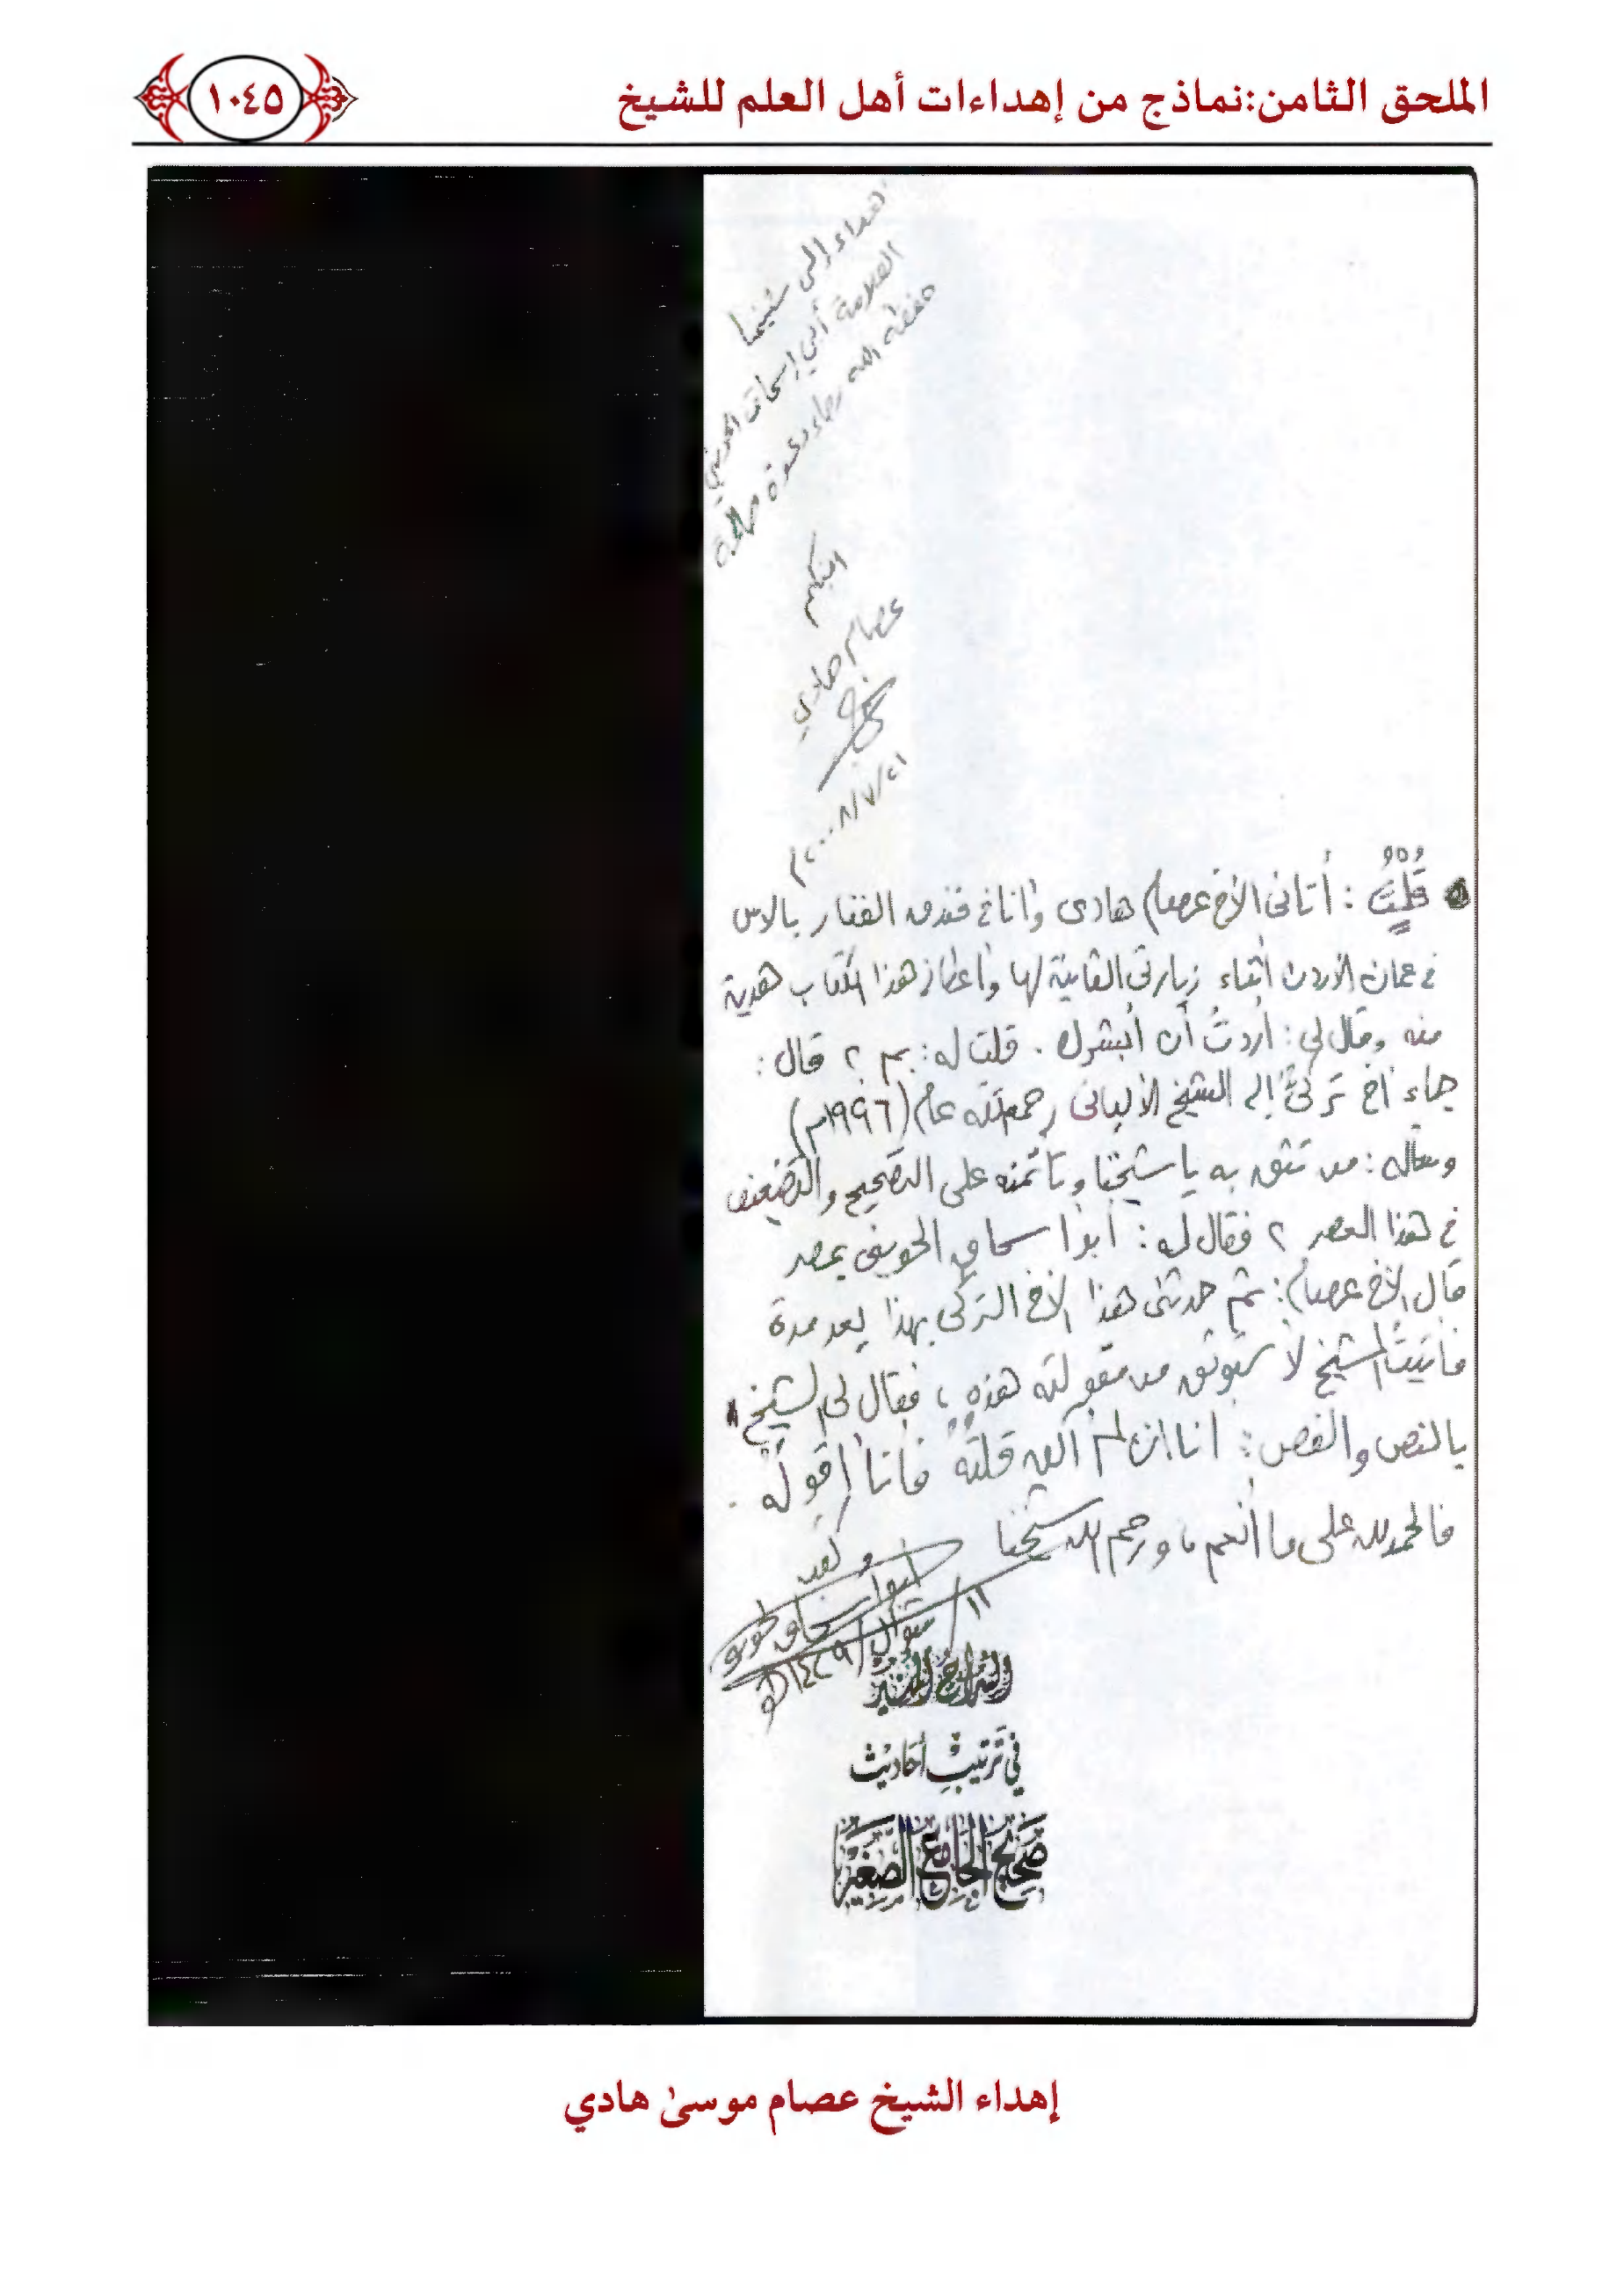 الملحق الثامن:نماذج من إهداءات أهل العلم للشيخ
١٠٤٥
إهداء إلى شيخنا
العلامة أبي إسحاق الحويني
حفظه الله رجاء دعوة صالحة
ابنكم
عصام هادي
٢١/٧/٢٠٠٨م
قُلْتُ : أتانى الأخ عصام هادى وأنا فى فندق بالاس
فى عمان الأردن أثناء زيارتى الثانية لها وأعطانى هذا الكتاب هدية
منه وقال لى: أردتُ أن أبشرك . قلت له: بم ؟ قال :
جاء أخ تركىٌ إلى الشيخ الألبانى رحمه الله عام (١٩٩٦م)
وسأله : من تثق به يا شيخنا وتأتمنه على التصحيح والتضعيف
فى هذا العصر ؟ فقال له : أبو اسحاق الحوينى بمصر
قال الأخ عصام : ثم حدثنى هذا الأخ التركى بهذا بعد مدة
فأتيتُ الشيخ لأستوثق من مقولته هذه ، فقال لى الشيخ
بالنص والفص : أنا إن لم أكن قلته فأنا أقوله .
فالحمد لله على ما أنعم ، ورحم الله شيخنا
وكتب
أبو اسحاق الحوينى
١١/ شوال/ ١٤٢٩هـ
السراج المنير
في ترتيب أحاديث
صحيح الجامع الصغير
إهداء الشيخ عصام موسىٰ هادي